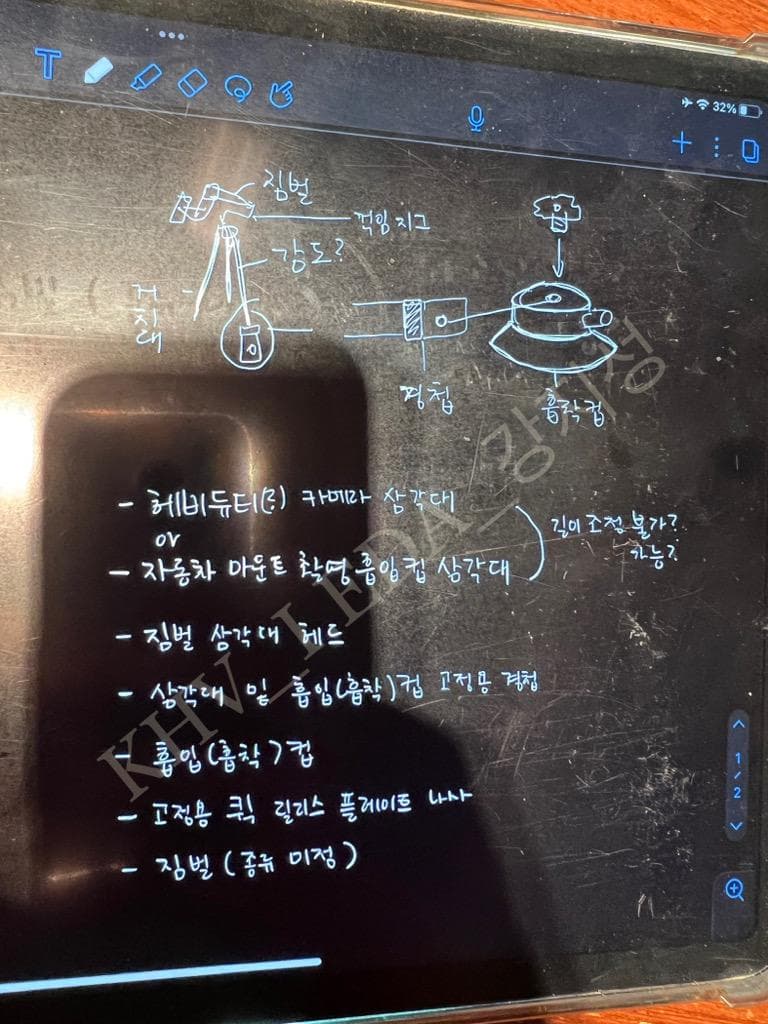 32%
짐벌
꺽임 지그
강도?
거치대
경첩
흡착컵
- 헤비듀티(?) 카메라 삼각대
or
- 자동차 마운트 촬영 흡입컵 삼각대
길이 조절 불가?
가능?
- 짐벌 삼각대 헤드
- 삼각대 밑 흡입(흡착)컵 고정용 경첩
- 흡입(흡착)컵
- 고정용 퀵 릴리스 플레이트 나사
- 짐벌 (종류 미정)
1/2
KHV_LEDA_강지성